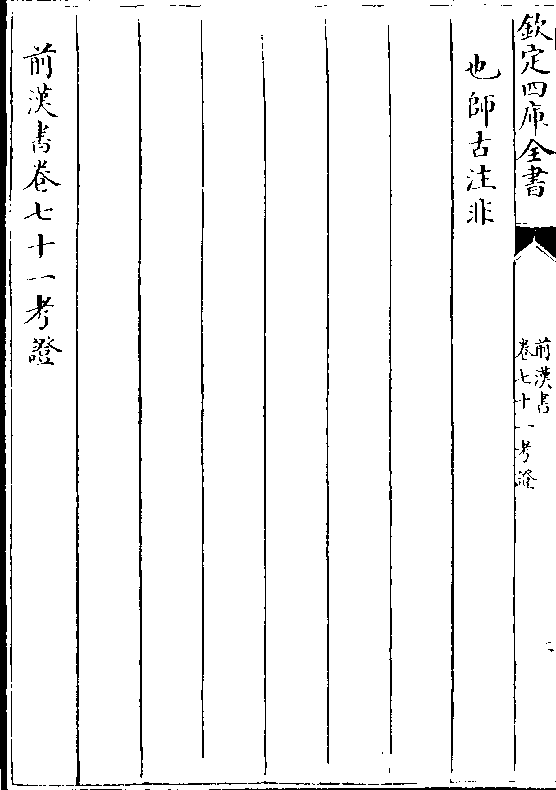 欽定四庫全書
前漢書
卷七十一考證
二
也師古注非
前漢書卷七十一考證